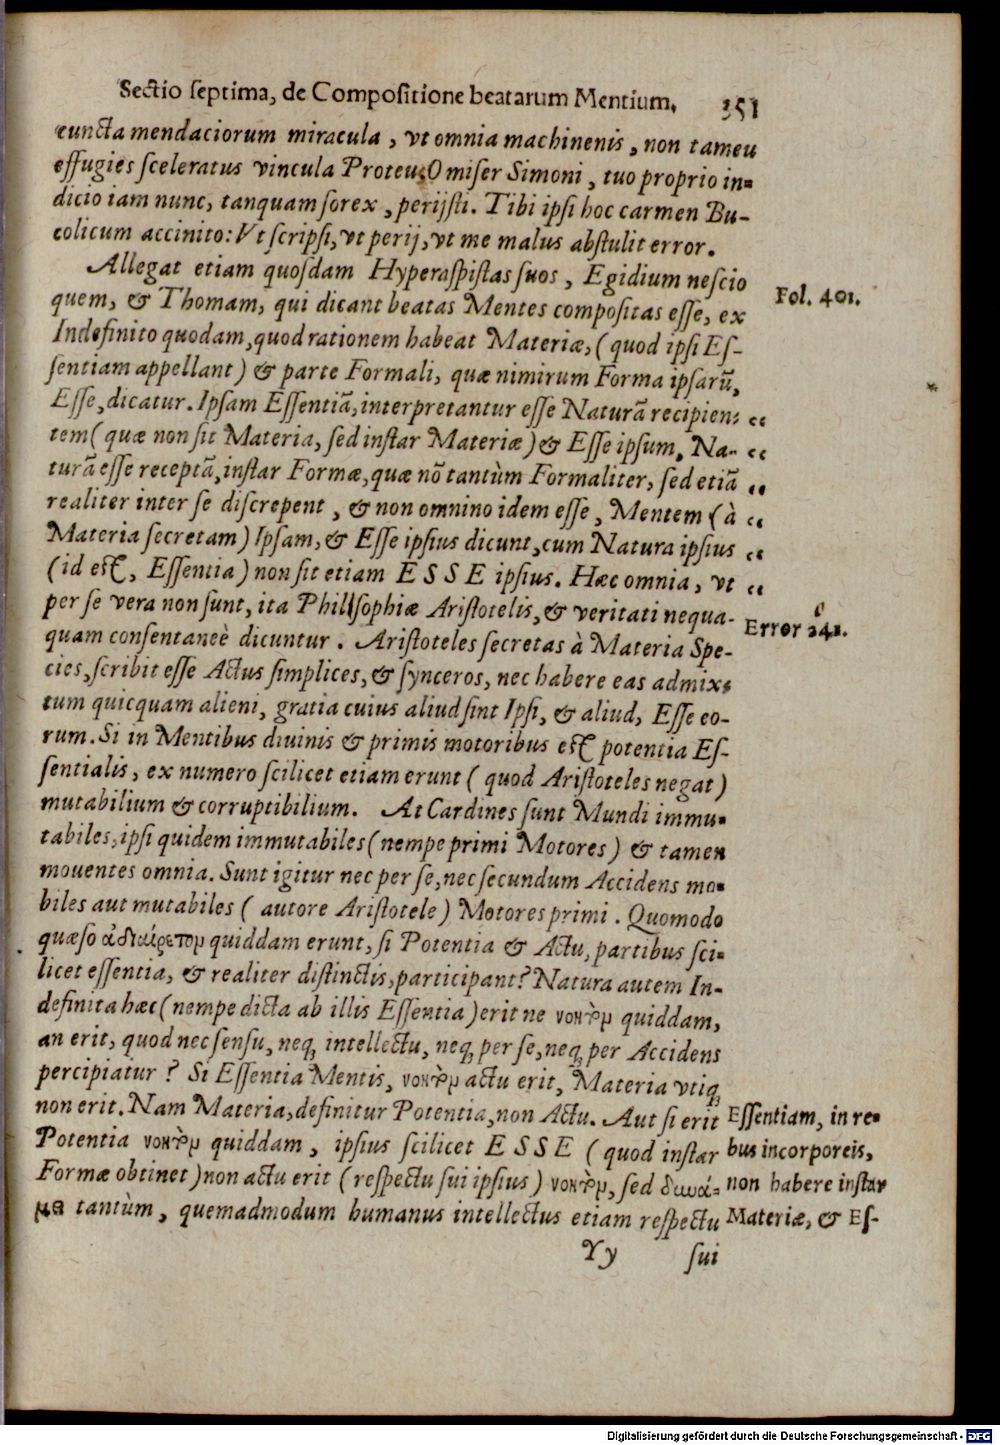 Sectio septima, de Compositione beatarum Mentium. 351
cuncta mendaciorum miracula, vt omnia machineris, non tameu
effugies sceleratus vincula Proteu. O miser Simoni, tuo proprio in-
dicio iam nunc, tanquam sorex, perijsti. Tibi ipsi hoc carmen Bu-
colicum accinito: Vt scripsi, vt perij, vt me malus abstulit error.
Allegat etiam quosdam Hyperaspistas suos, Egidium nescio
Fol. 401.
quem, & Thomam, qui dicant beatas Mentes compositas esse, ex
Indefinito quodam, quod rationem habeat Materiæ, (quod ipsi Es-
sentiam appellant) & parte Formali, quæ nimirum Forma ipsarũ,
Esse, dicatur. Ipsam Essentiã, interpretantur esse Naturã recipien- “
tem (quæ non sit Materia, sed instar Materiæ) & Esse ipsum, Na- “
turã esse receptã, instar Formæ, quæ nõ tantùm Formaliter, sed etiã “
realiter inter se discrepent, & non omnino idem esse, Mentem (à “
Materia secretam) Ipsam, & Esse ipsius dicunt, cum Natura ipsius “
(id est, Essentia) non sit etiam ESSE ipsius. Hæc omnia, vt “
per se vera non sunt, ita Philosophiæ Aristotelis, & veritati nequa-
Error 241.
quam consentaneè dicuntur. Aristoteles secretas à Materia Spe-
cies, scribit esse Actus simplices, & synceros, nec habere eas admix-
tum quicquam alieni, gratia cuius aliud sint Ipsi, & aliud, Esse eo-
rum. Si in Mentibus diuinis & primis motoribus est potentia Es-
sentialis, ex numero scilicet etiam erunt (quod Aristoteles negat)
mutabilium & corruptibilium. At Cardines sunt Mundi immu-
tabiles, ipsi quidem immutabiles (nempe primi Motores) & tamen
mouentes omnia. Sunt igitur nec per se, nec secundum Accidens mo-
biles aut mutabiles (autore Aristotele) Motores primi. Quomodo
quæso ἀδιαίρετομ quiddam erunt, si Potentia & Actu, partibus sci-
licet essentia, & realiter distinctis, participant? Natura autem In-
definita hæc (nempe dicta ab illis Essentia) erit ne νοητὸμ quiddam,
an erit, quod nec sensu, neq; intellectu, neq; per se, neq; per Accidens
percipiatur? Si Essentia Mentis, νοητὸμ actu erit, Materia vtiq;
non erit. Nam Materia, definitur Potentia, non Actu. Aut si erit
Potentia νοητὸμ quiddam, ipsius scilicet ESSE (quod instar
Formæ obtinet) non actu erit (respectu sui ipsius) νοητὸμ, sed δυνά-
μει tantùm, quemadmodum humanus intellectus etiam respectu
Essentiam, in re-
bus incorporeis,
non habere instar
Materiæ, & Es-
Yy sui
Digitalisierung gefördert durch die Deutsche Forschungsgemeinschaft - DFG